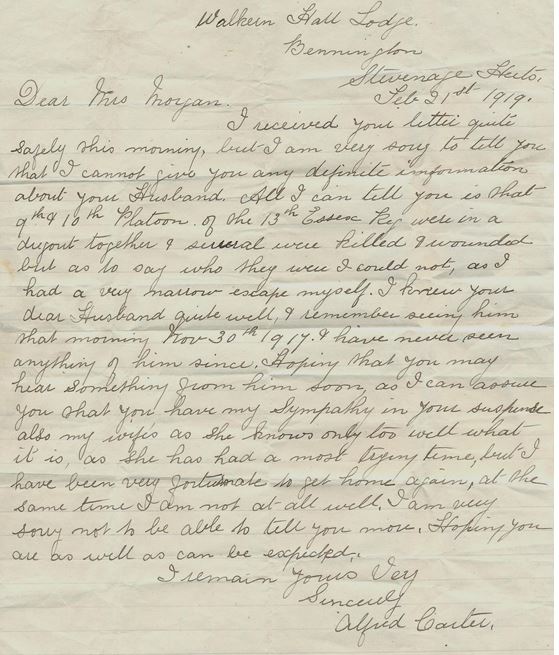 Walkern Hall Lodge.
Bennington
Stevenage Herts.
Feb 21st 1919.
Dear Mrs Morgan.
I received your letter quite
safely this morning, but I am very sorry to tell you
that I cannot give you any definite information
about your Husband. All I can tell you is that
9th & 10th Platoon. of the 13th Essex Reg were in a
dugout together & several were killed & wounded
but as to say who they were I could not, as I
had a very narrow escape myself. I knew your
dear Husband quite well, & remember seeing him
that morning Nov 30th 1917. & have never seen
anything of him since, Hoping that you may
hear something from him soon, as I can assure
you that you have my Sympathy in your suspense
also my wife's as she knows only too well what
it is, as she has had a most trying time, but I
have been very fortunate to get home again, at the
same time I am not at all well, I am very
sorry not to be able to tell you more. Hoping you
are as well as can be expected.
I remain Yours Very
Sincerely
Alfred Carter.